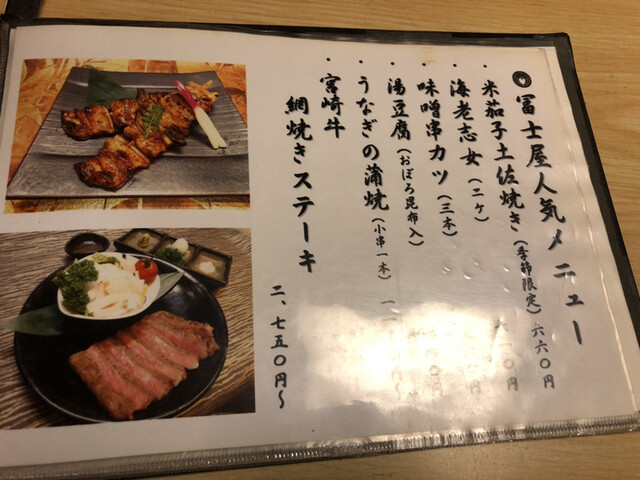 冨士屋人気メニュー
・米茄子土佐焼き(季節限定)六六〇円
・海老志女(二ケ)
・味噌串カツ(三本)
・湯豆腐(おぼろ昆布入)
・うなぎの蒲焼(小串一本)
・宮崎牛
網焼きステーキ 二、七五〇円~